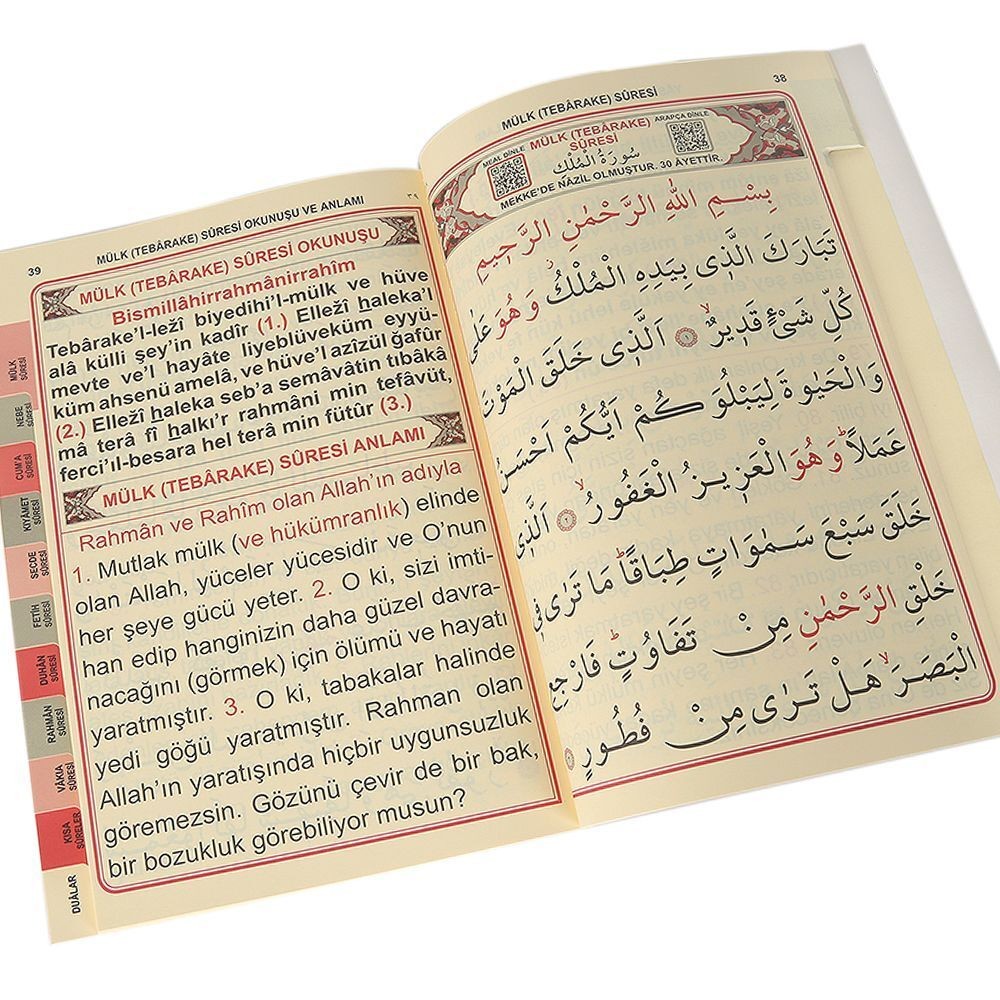 38
MÜLK (TEBÂRAKE) SÛRESİ
MEAL DİNLE
MÜLK (TEBÂRAKE)
SÛRESİ
ARAPÇA DİNLE
سُورَةُ الْمُلْكِ
MEKKE'DE NÂZİL OLMUŞTUR. 30 ÂYETTİR.
بِسْمِ اللهِ الرَّحْمٰنِ الرَّحٖيمِ
تَبَارَكَ الَّذٖى بِيَدِهِ الْمُلْكُ وَهُوَ عَلٰى
كُلِّ شَىْءٍ قَدٖيرٌ ﴿١﴾ اَلَّذٖى خَلَقَ الْمَوْتَ
وَالْحَيٰوةَ لِيَبْلُوَكُمْ اَيُّكُمْ اَحْسَنُ
عَمَلاً وَهُوَ الْعَزٖيزُ الْغَفُورُ ﴿٢﴾ اَلَّذٖى
خَلَقَ سَبْعَ سَمٰوَاتٍ طِبَاقًا مَا تَرٰى فٖى
خَلْقِ الرَّحْمٰنِ مِنْ تَفَاوُتٍ فَارْجِعِ
الْبَصَرَ هَلْ تَرٰى مِنْ فُطُورٍ ﴿٣﴾
39
MÜLK (TEBÂRAKE) SÛRESİ OKUNUŞU VE ANLAMI
٣٩
MÜLK (TEBÂRAKE) SÛRESİ OKUNUŞU
Bismillâhirrahmânirrahîm
Tebârake'l-lezî biyedihi'l-mülk ve hüve
alâ külli şey'in kadîr (1.) Ellezî haleka'l
mevte ve'l hayâte liyeblüveküm eyyü-
küm ahsenü amelâ, ve hüve'l azîzül ğafûr
(2.) Ellezî haleka seb'a semâvâtin tıbâkâ
mâ terâ fî halkı'r rahmâni min tefâvüt,
ferci'ıl-besara hel terâ min fütûr (3.)
MÜLK (TEBÂRAKE) SÛRESİ ANLAMI
Rahmân ve Rahîm olan Allah'ın adıyla
1. Mutlak mülk (ve hükümranlık) elinde
olan Allah, yüceler yücesidir ve O'nun
her şeye gücü yeter. 2. O ki, sizi imti-
han edip hanginizin daha güzel davra-
nacağını (görmek) için ölümü ve hayatı
yaratmıştır. 3. O ki, tabakalar halinde
yedi göğü yaratmıştır. Rahman olan
Allah'ın yaratışında hiçbir uygunsuzluk
göremezsin. Gözünü çevir de bir bak,
bir bozukluk görebiliyor musun?
MÜLK
SÛRESİ
NEBE
SÛRESİ
CUM'A
SÛRESİ
KIYÂMET
SÛRESİ
SECDE
SÛRESİ
FETİH
SÛRESİ
DUHÂN
SÛRESİ
RAHMÂN
SÛRESİ
VÂKIA
SÛRESİ
KISA
SÛRELER
DUÂLAR